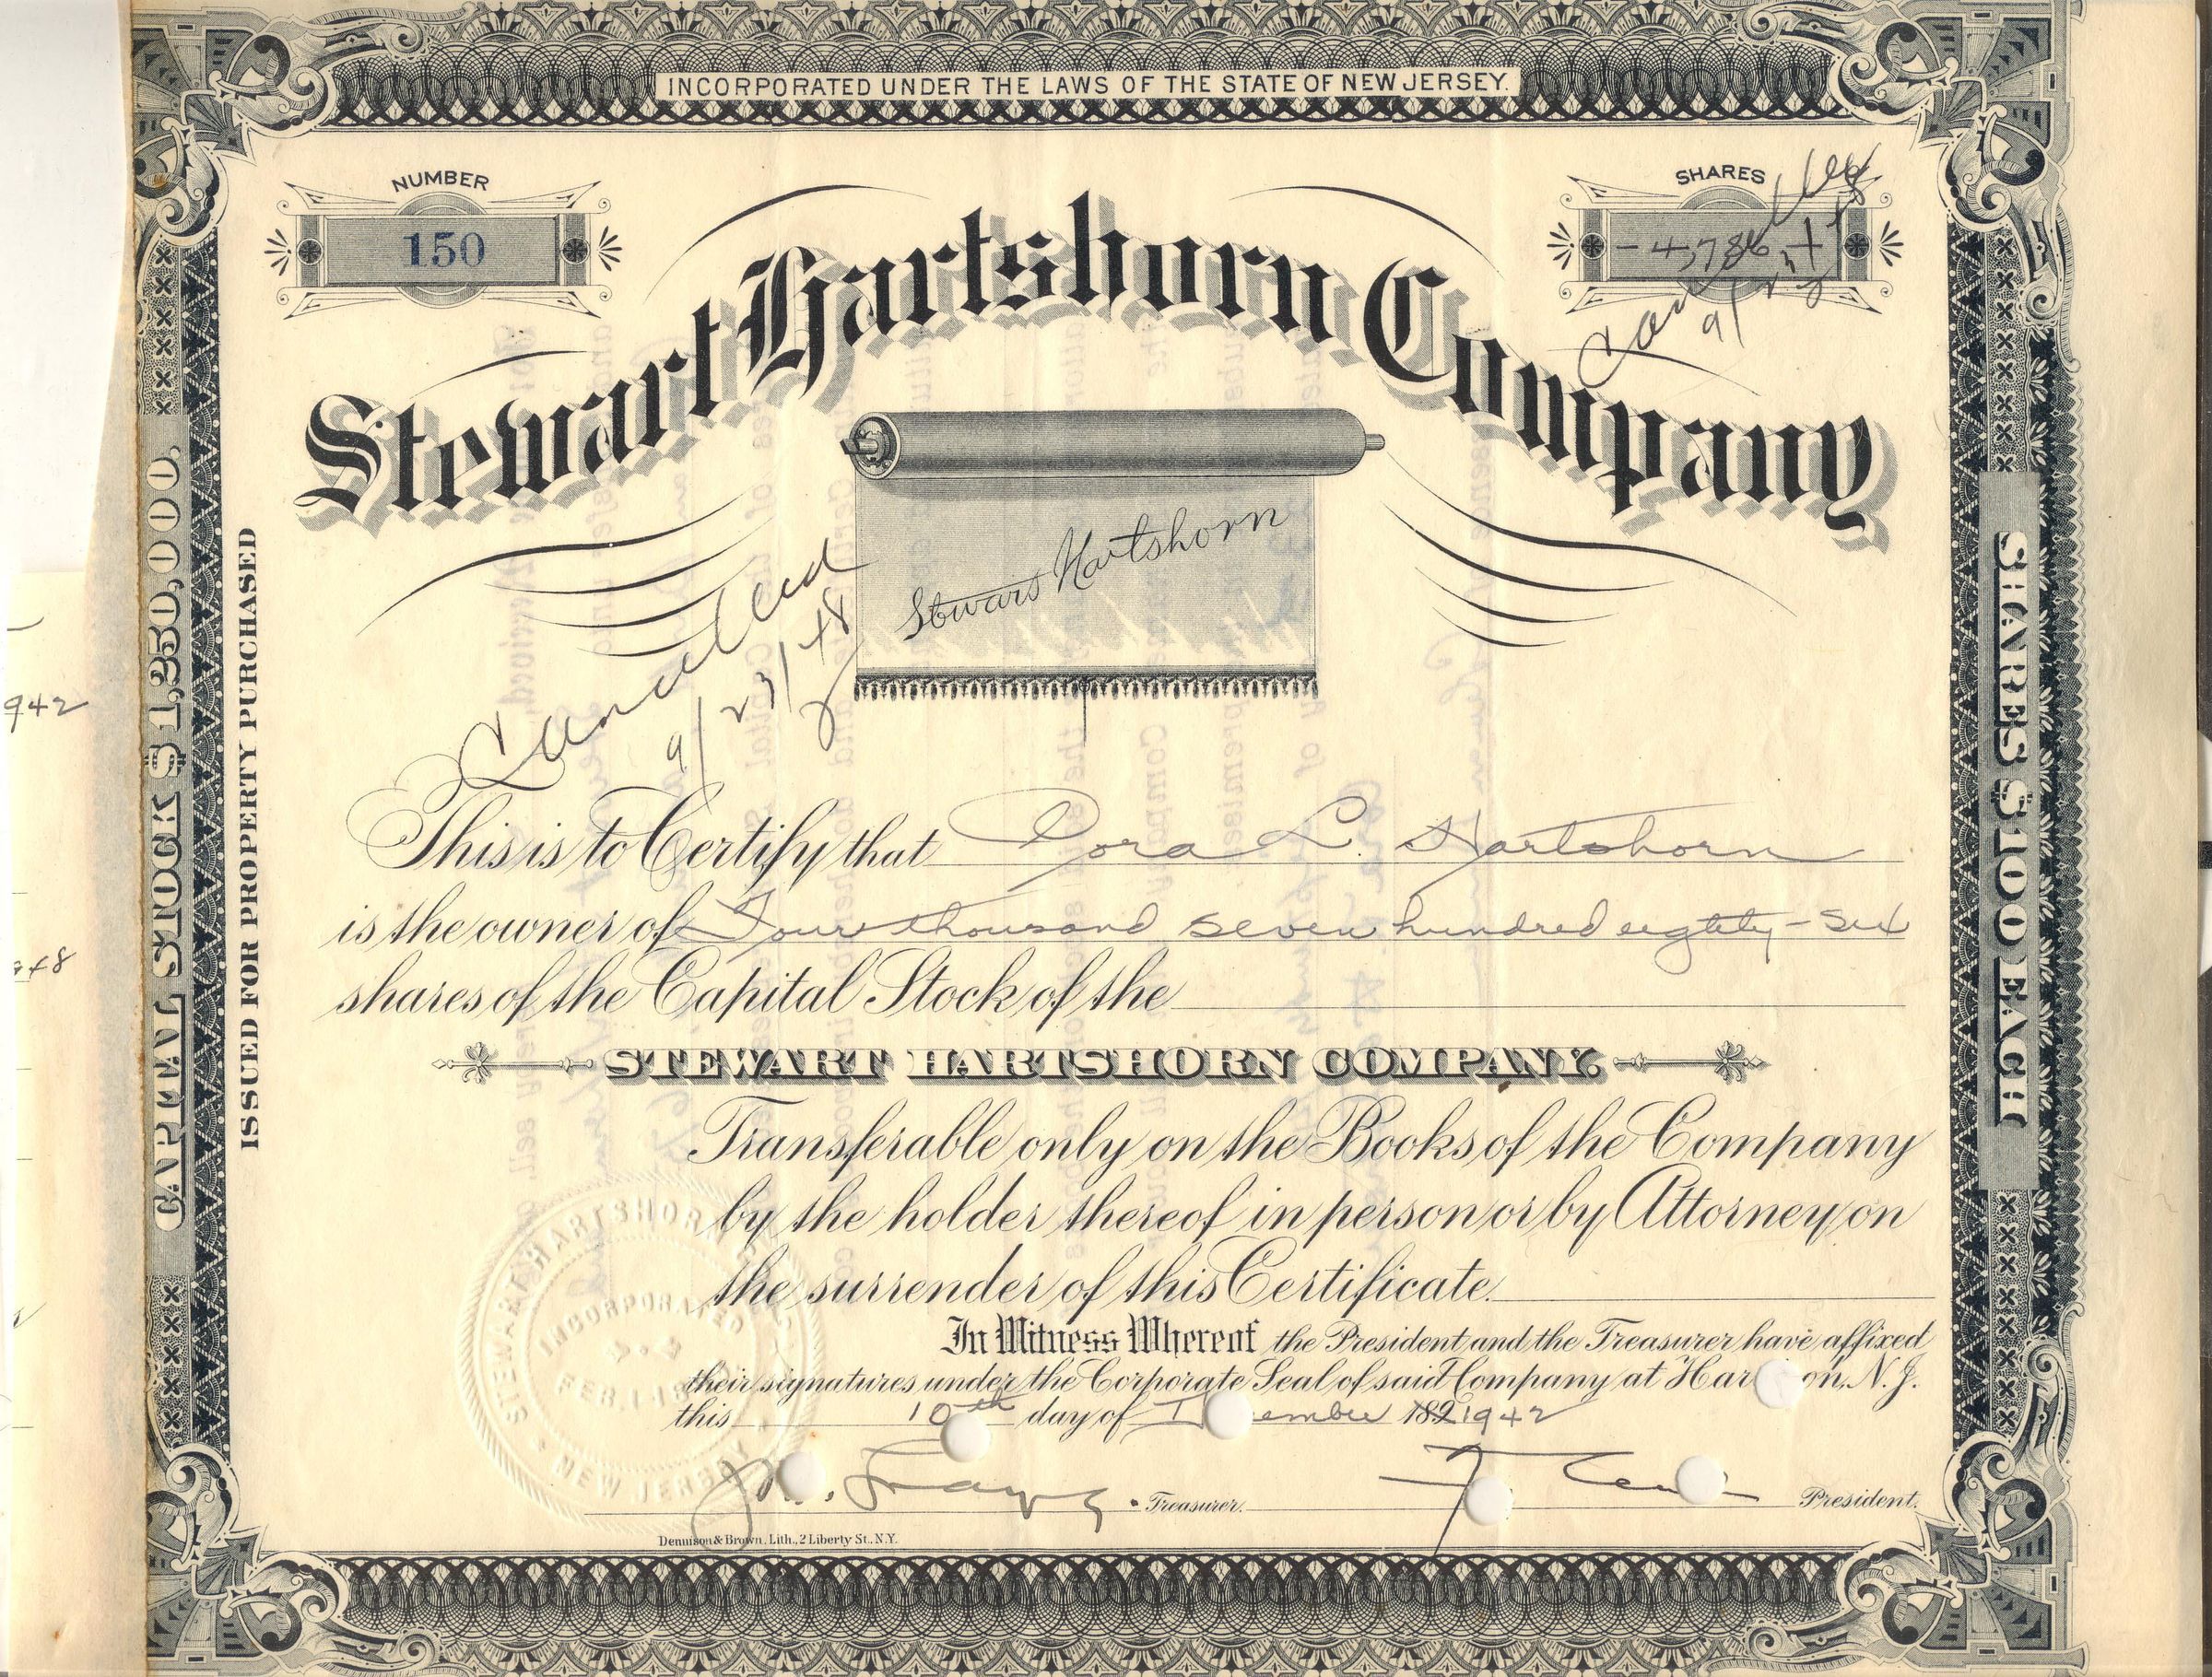 INCORPORATED UNDER THE LAWS OF THE STATE OF NEW JERSEY.
NUMBER
150
SHARES
-4,786-
Cancelled
9/23/48
Stewart Hartshorn Company
Stewart Hartshorn
Cancelled
9/23/48
CAPITAL STOCK $1,250,000.
ISSUED FOR PROPERTY PURCHASED
SHARES $100 EACH
942
48
This is to Certify that Cora L. Hartshorn
is the owner of Four thousand seven hundred eigtity-six
shares of the Capital Stock of the
STEWART HARTSHORN COMPANY.
Transferable only on the Books of the Company
by the holder thereof in person or by Attorney on
the surrender of this Certificate.
In Witness Whereof the President and the Treasurer have affixed
their signatures under the Corporate Seal of said Company at Har on, N.J.
this 10th day of D ember 189 1942
Treasurer. President.
STEWART HARTSHORN
INCORPORATED
FEB. 1
NEW JERSEY
Dennison & Brown, Lith., 2 Liberty St., N.Y.